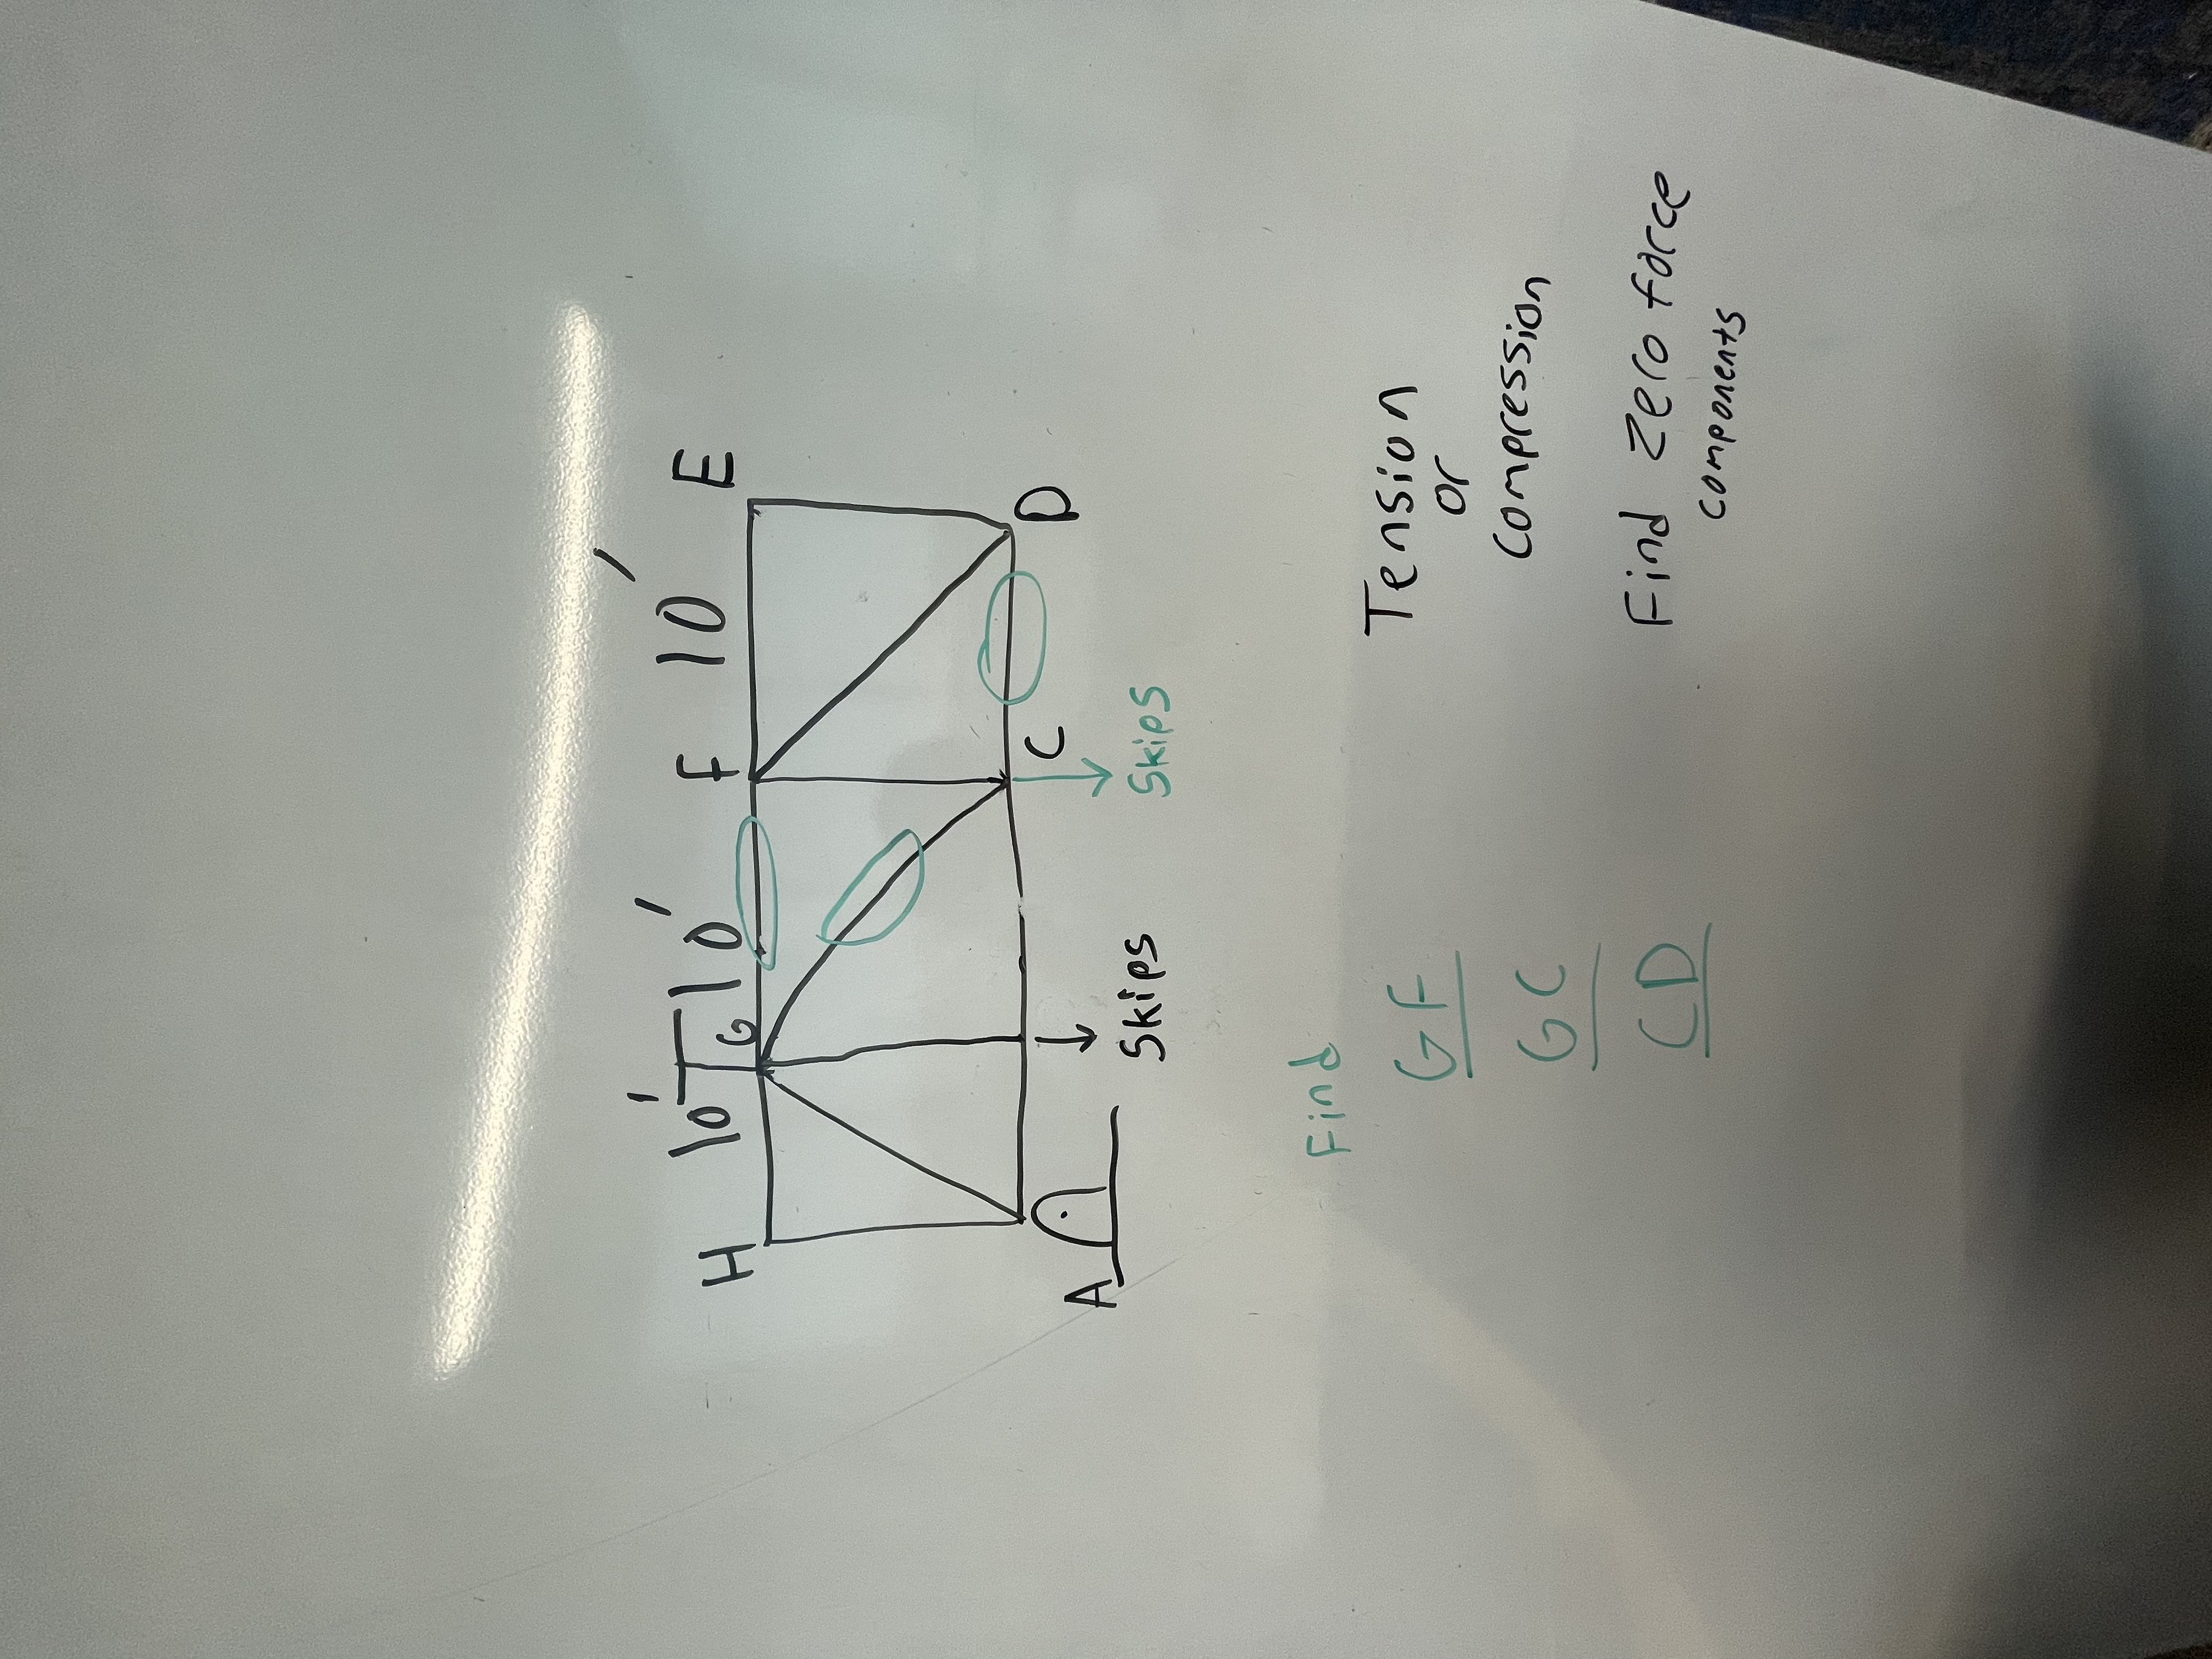 H 10' 10' F 10' E
G
A C D
5kips 5kips
Find
GF
GC
CD
Tension
or
Compression
Find zero force
components